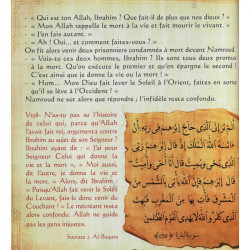 - « Qui est ton Allah, Ibrahim ? Que fait-il de plus que nos dieux ? »
- « Mon Allah rappelle la mort à la vie et fait mourir le vivant. »
« J'en fais autant. »
- « Ah ! Oui... et comment faites-vous ? »
On fit alors venir deux prisonniers condamnés à mort devant Namroud.
- « Vois-tu ces deux hommes, Ibrahim ? Ils sont tous deux promis
à la mort. Qu'on exécute le premier et qu'on épargne le second !
C'est ainsi que je donne la vie ou la mort ! »
- « Hum... Mon Dieu fait lever le Soleil à l'Orient, faites en sorte
qu'il se lève à l'Occident ! »
Namroud ne sut alors que répondre ; l'infidèle resta confondu.
V258- N'as-tu pas su l'histoire
de celui qui, parce qu'Allah
l'avait fait roi, argumenta contre
Ibrahim au sujet de son Seigneur ?
Ibrahim ayant dit : « J'ai pour
Seigneur Celui qui donne la vie
et la mort », « Moi aussi,
dit l'autre, je donne la vie et
la mort. » Alors, dit Ibrahim,
« Puisqu'Allah fait venir le Soleil
du Levant, fais-le donc venir du
Couchant ! » Le mécréant resta
alors confondu. Allah ne guide pas
les gens injustes.
Sourate 2. Al-Baqara
أَلَمْ تَرَ إِلَى الَّذِي حَاجَّ إِبْرَاهِيمَ فِي رَبِّهِ أَنْ
آتَاهُ اللَّهُ الْمُلْكَ إِذْ قَالَ إِبْرَاهِيمُ رَبِّيَ الَّذِي